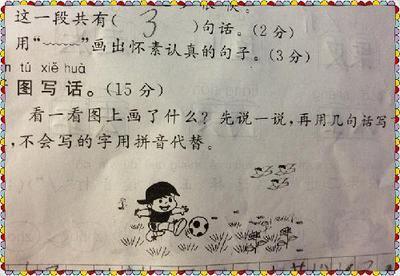 这一段共有( 3 )句话。(2分)
用“﹏﹏”画出怀素认真的句子。(3分)
n tú xiě huà
图写话。(15分)
看一看图上画了什么?先说一说,再用几句话写
,不会写的字用拼音代替。